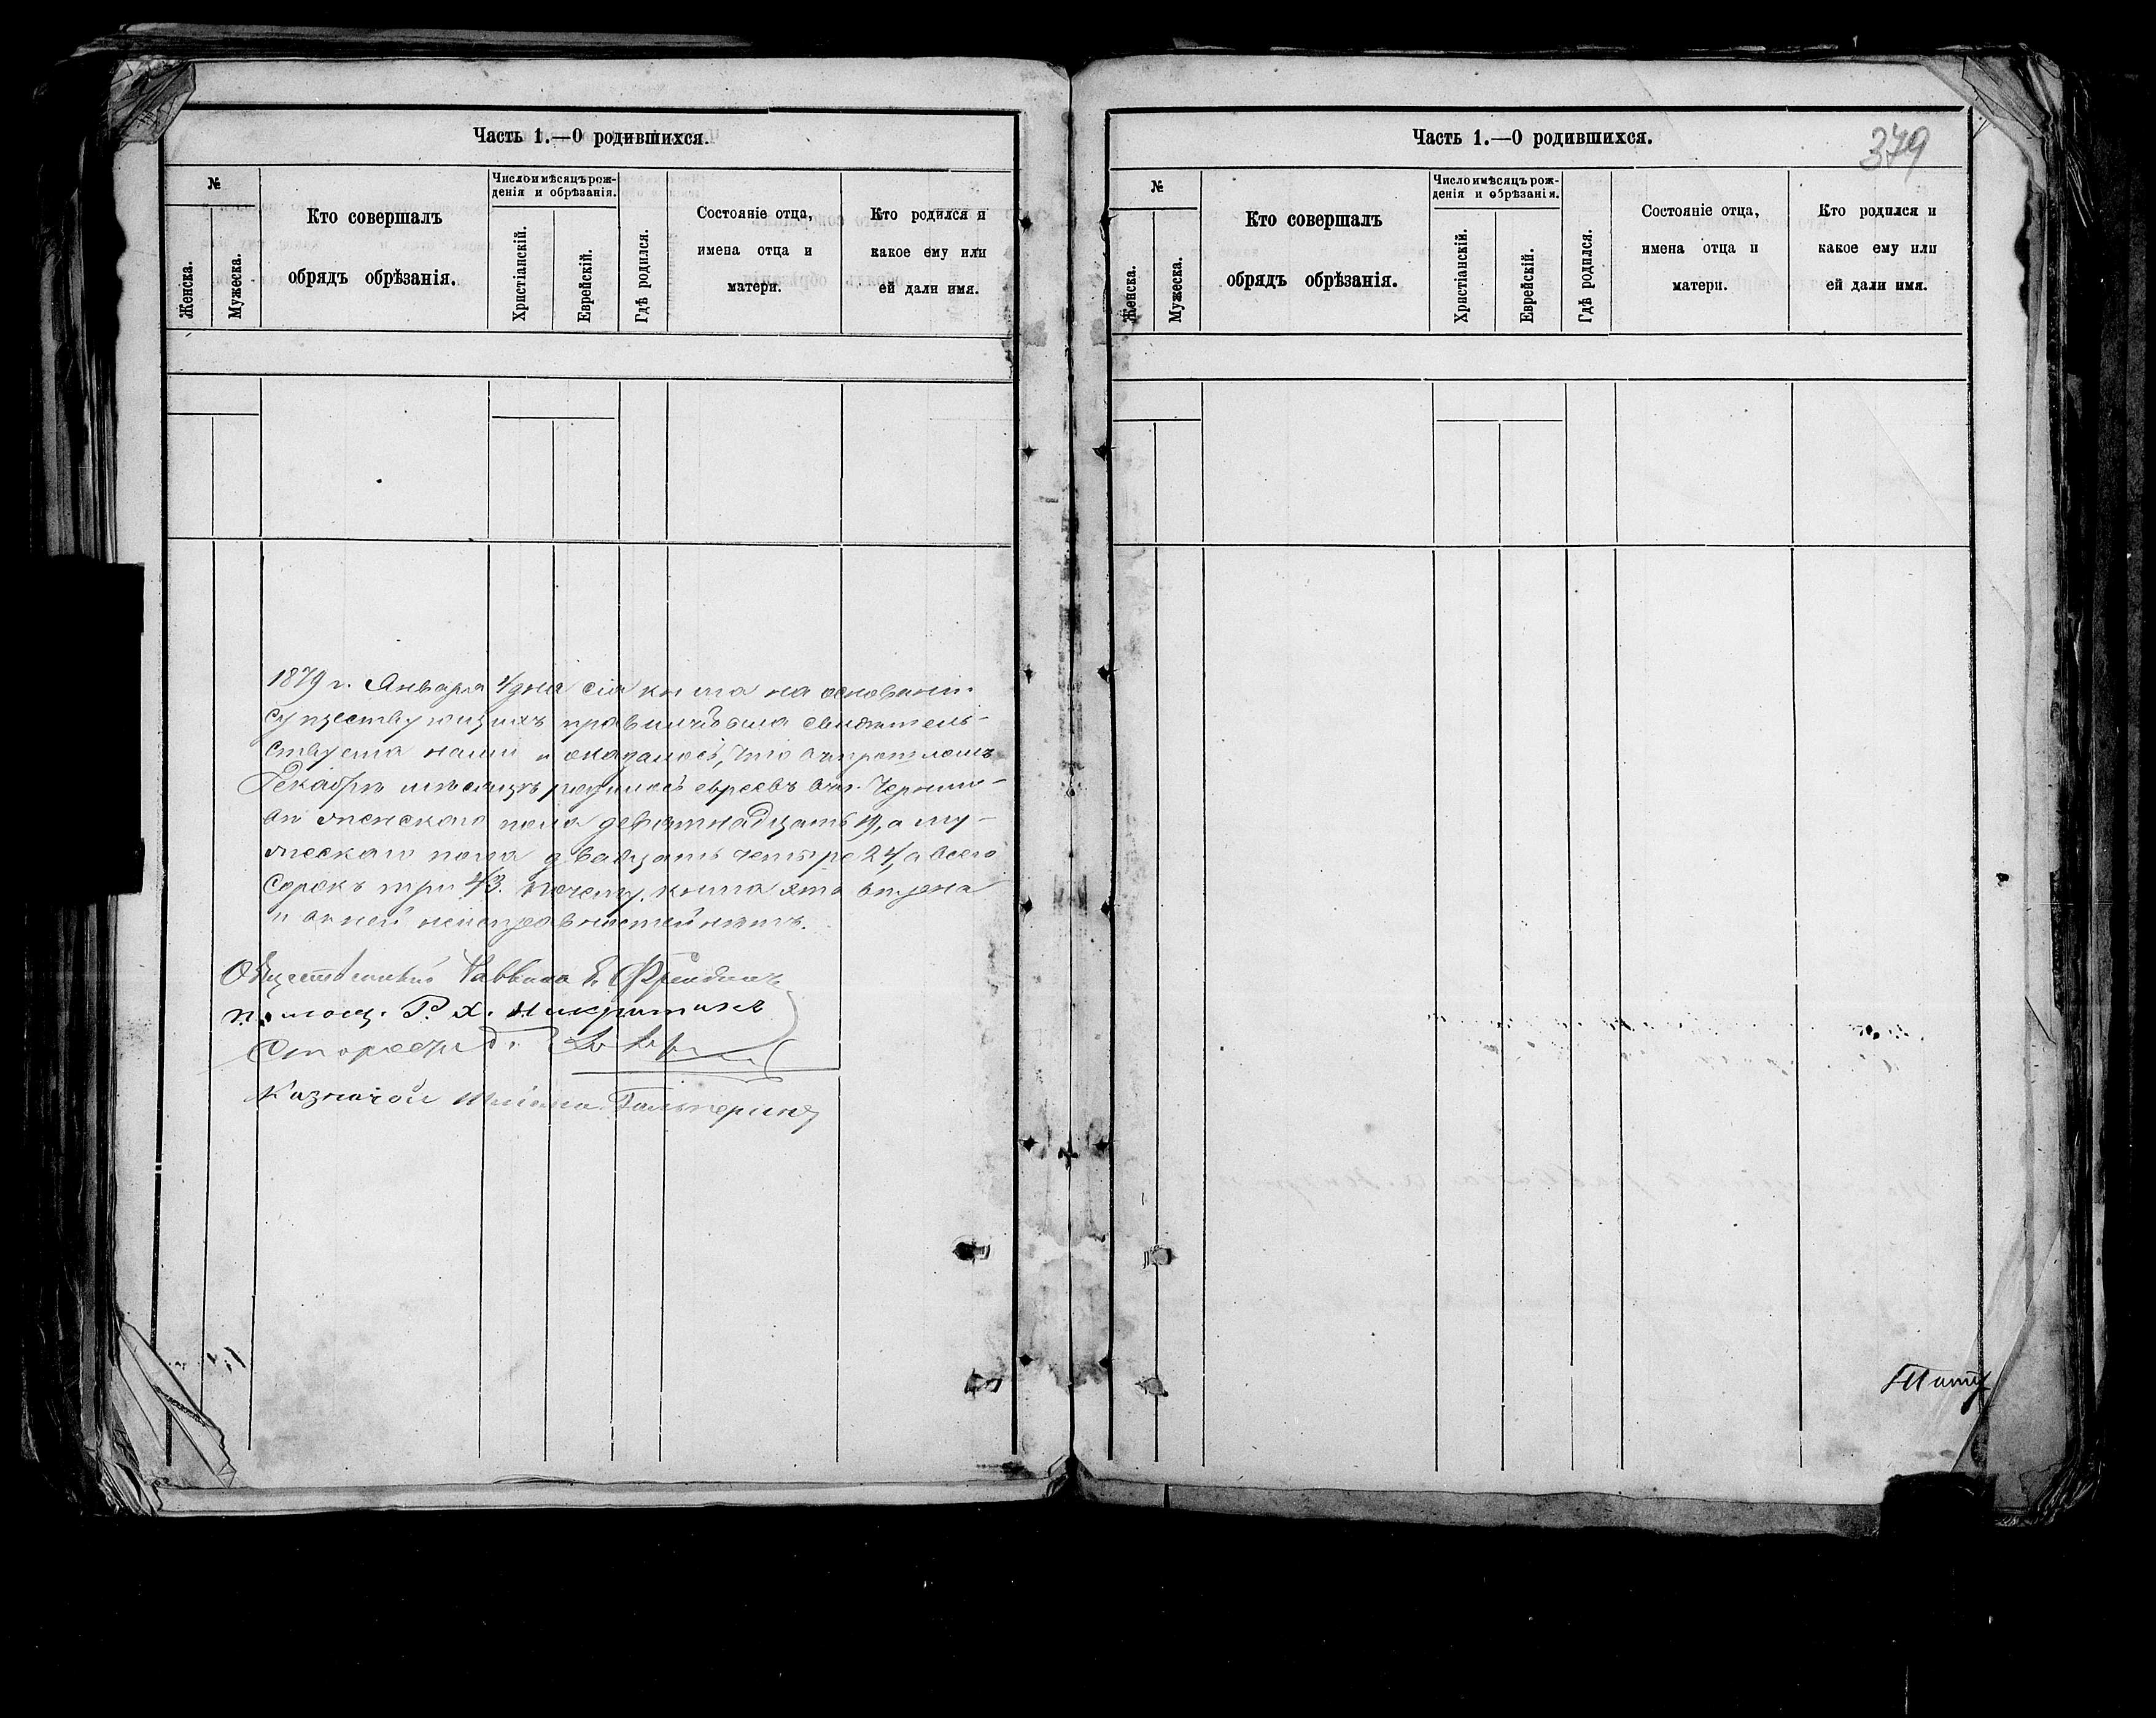 Часть 1.—О родившихся.
№
Женска.
Мужеска.
Кто совершалъ
обрядъ обрѣзанія.
Число и мѣсяцъ рож-
денія и обрѣзанія.
Христіанскій.
Еврейскій.
Гдѣ родился.
Состояніе отца,
имена отца и
матери.
Кто родился и
какое ему или
ей дали имя.
1879 г. Января 4 дня сія книга на основаніи
существующихъ правилъ была свидѣтель-
ствуема нами и оказалось, что въ прошломъ
Декабрѣ мѣсяцѣ родилось евреевъ въ г. Черниго-
вѣ женскаго пола девятнадцать 19, а му-
жескаго пола двадцать четыре 24, а всего
Сорокъ три 43. почему книга эта вѣрна
и въ ней неисправностей нѣтъ.
Общественный Раввинъ Фрейдинъ
П. мощ. Р. Х. Никритинъ
Староста
Казначей Гальперинъ
Часть 1.—О родившихся.
379
№
Женска.
Мужеска.
Кто совершалъ
обрядъ обрѣзанія.
Число и мѣсяцъ рож-
денія и обрѣзанія.
Христіанскій.
Еврейскій.
Гдѣ родился.
Состояніе отца,
имена отца и
матери.
Кто родился и
какое ему или
ей дали имя.